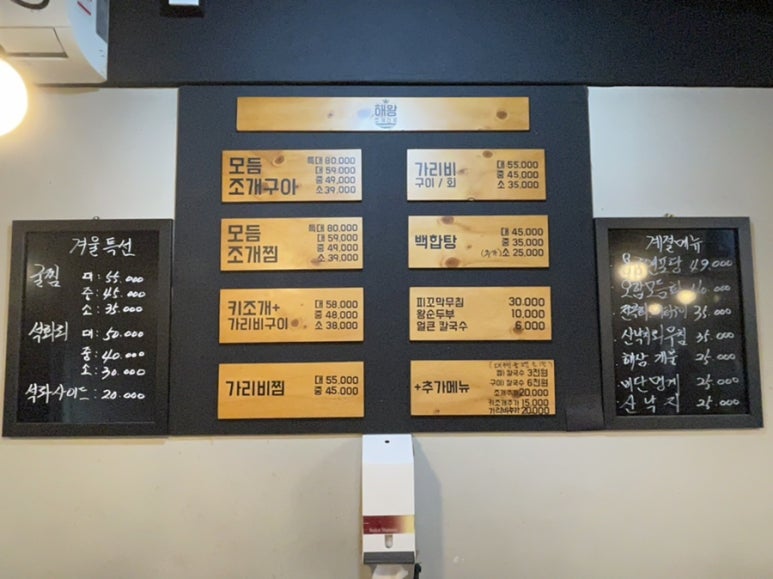 해왕
모듬
조개구아
특대 80,000
대 59,000
중 49,000
소 39,000
모듬
조개찜
특대 80,000
대 59,000
중 49,000
소 39,000
키조개+
가리비구이
대 58,000
중 48,000
소 38,000
가리비찜
대 55,000
중 45,000
가리비
구이 / 회
대 55,000
중 45,000
소 35,000
백합탕
대 45,000
중 35,000
(추가) 소 25,000
피꼬막무침 30,000
왕순두부 10,000
얼큰 칼국수 6,000
+추가메뉴
찜) 칼국수 3천원
구이) 칼국수 6천원
조개추가 20,000
키조개추가 15,000
가리비추가 20,000
겨울특선
굴찜 대: 55.000
중: 45.000
소: 35.000
석화회 대: 50.000
중: 40.000
소: 30.000
석화사이드: 20.000
계절메뉴
49.000
35.000
35.000
해삼 25.000
25.000
산낙지 25.000